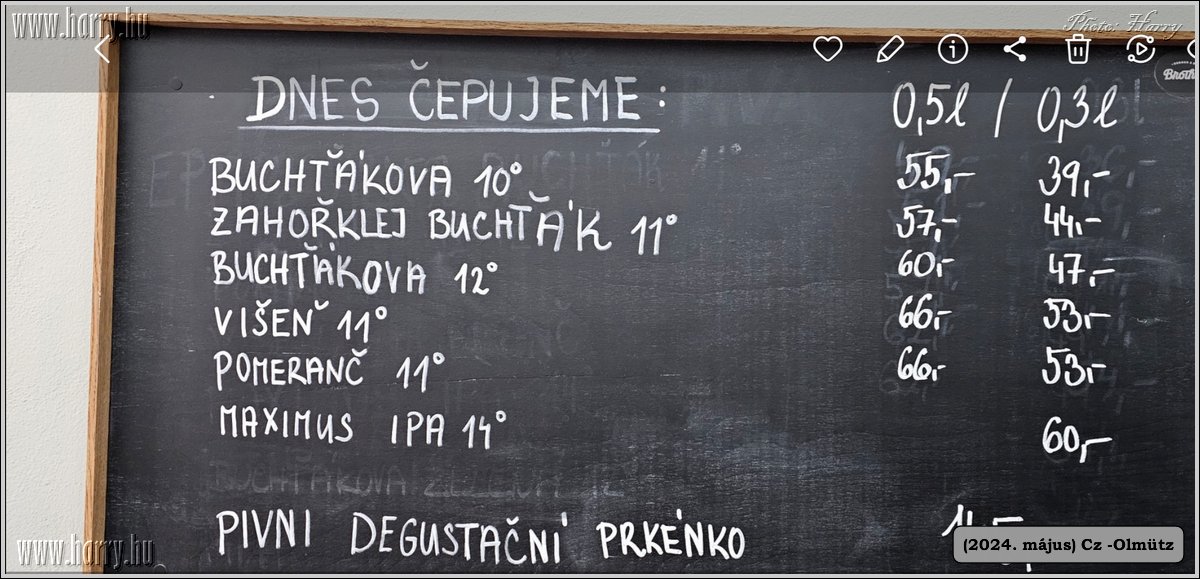 www.harry.hu
Photo: Harry
DNES ČEPUJEME: 0,5l / 0,3l
BUCHŤÁKOVA 10° 55,- 39,-
ZAHOŘKLEJ BUCHŤÁK 11° 57,- 44,-
BUCHŤÁKOVA 12° 60,- 47,-
VIŠEŇ 11° 66,- 53,-
POMERANČ 11° 66,- 53,-
MAXIMUS IPA 14° 60,-
PIVNI DEGUSTAČNÍ PRKÉNKO
www.harry.hu
(2024. május) Cz -Olmütz